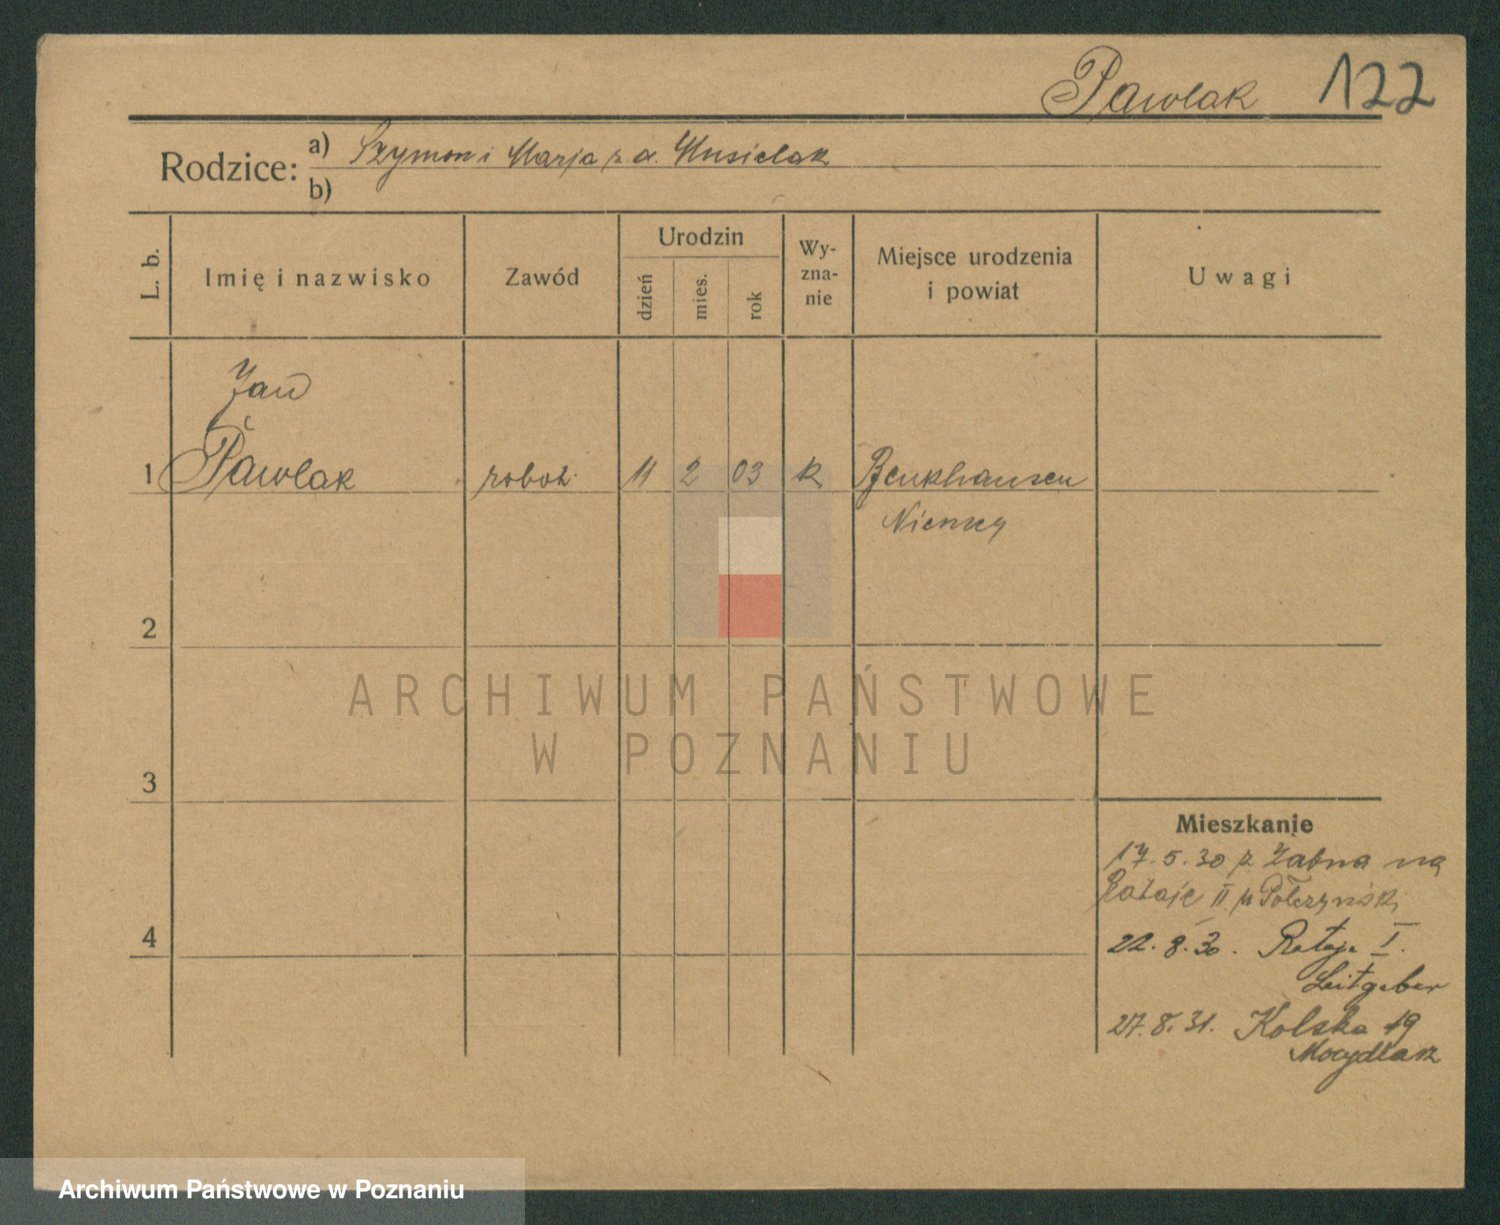 Pawlak 122
Rodzice: a) Szymon i Marja z d. Musielak
b)
L. b. Imię i nazwisko Zawód Urodzin dzień mies. rok Wyznanie Miejsce urodzenia i powiat Uwagi
Jan
1 Pawlak robot. 11 2 03 k
Niemcy
2
3
4
Mieszkanie
17.5.30 z Żabna na
Rataje II
22.8.30. Rataje I.
Leitgeber
27.8.31. Kolska 19
ARCHIWUM PAŃSTWOWE
W POZNANIU
Archiwum Państwowe w Poznaniu